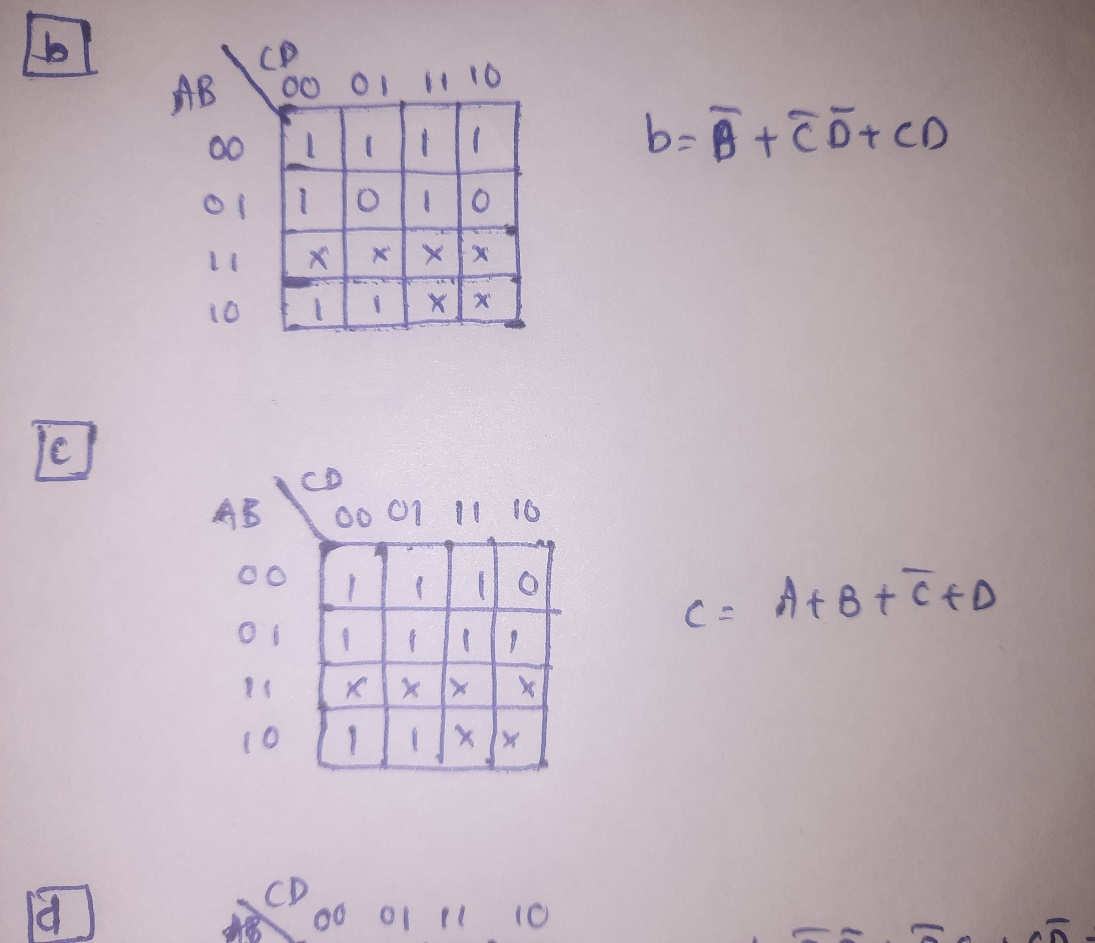 b
CD
AB 00 01 11 10
00 1 1 1 1
01 1 0 1 0
11 x x x x
10 1 1 x x
b = B̅ + C̅ D̅ + CD
c
CD
AB 00 01 11 10
00 1 1 1 0
01 1 1 1 1
11 x x x x
10 1 1 x x
c = A + B + C̅ + D
d
CD
AB 00 01 11 10